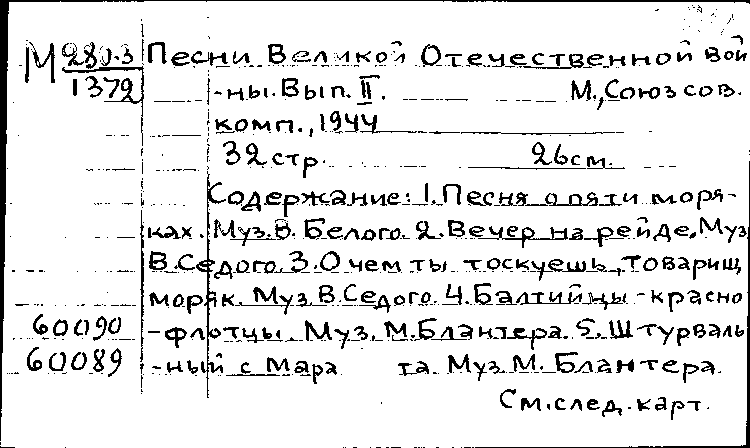 М 280-3 Песни Великой Отечественной вой
1372 -ны. Вып. II. М., Союз сов.
комп., 1944
32 стр. 26 см.
Содержание: 1. Песня о пяти моря-
ках. Муз. В. Белого. 2. Вечер на рейде. Муз
В. Седого. 3. О чем ты тоскуешь, товарищ
моряк. Муз. В. Седого. 4. Балтийцы - красно
60090 -флотцы. Муз. М. Блантера. 5. Штурваль
60089 -ный с Мара та. Муз. М. Блантера.
См. след. карт.